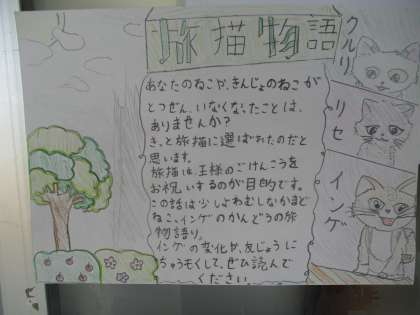 旅描物語
あなたのねこや、きんじょのねこが
とつぜん、いなくなったことは、
ありませんか?
きっと旅描に選ばれたのだと
思います。
旅描は、王様のごけんこうを
お祝いするのが目的です。
この話は少しよわむしなかまど
ねこ、インゲのかんどうの旅
物語り。
インゲの変化や、友じょうに
ちゅうもくして、ぜひ読んで
ください。
クルリ
リセ
インゲ